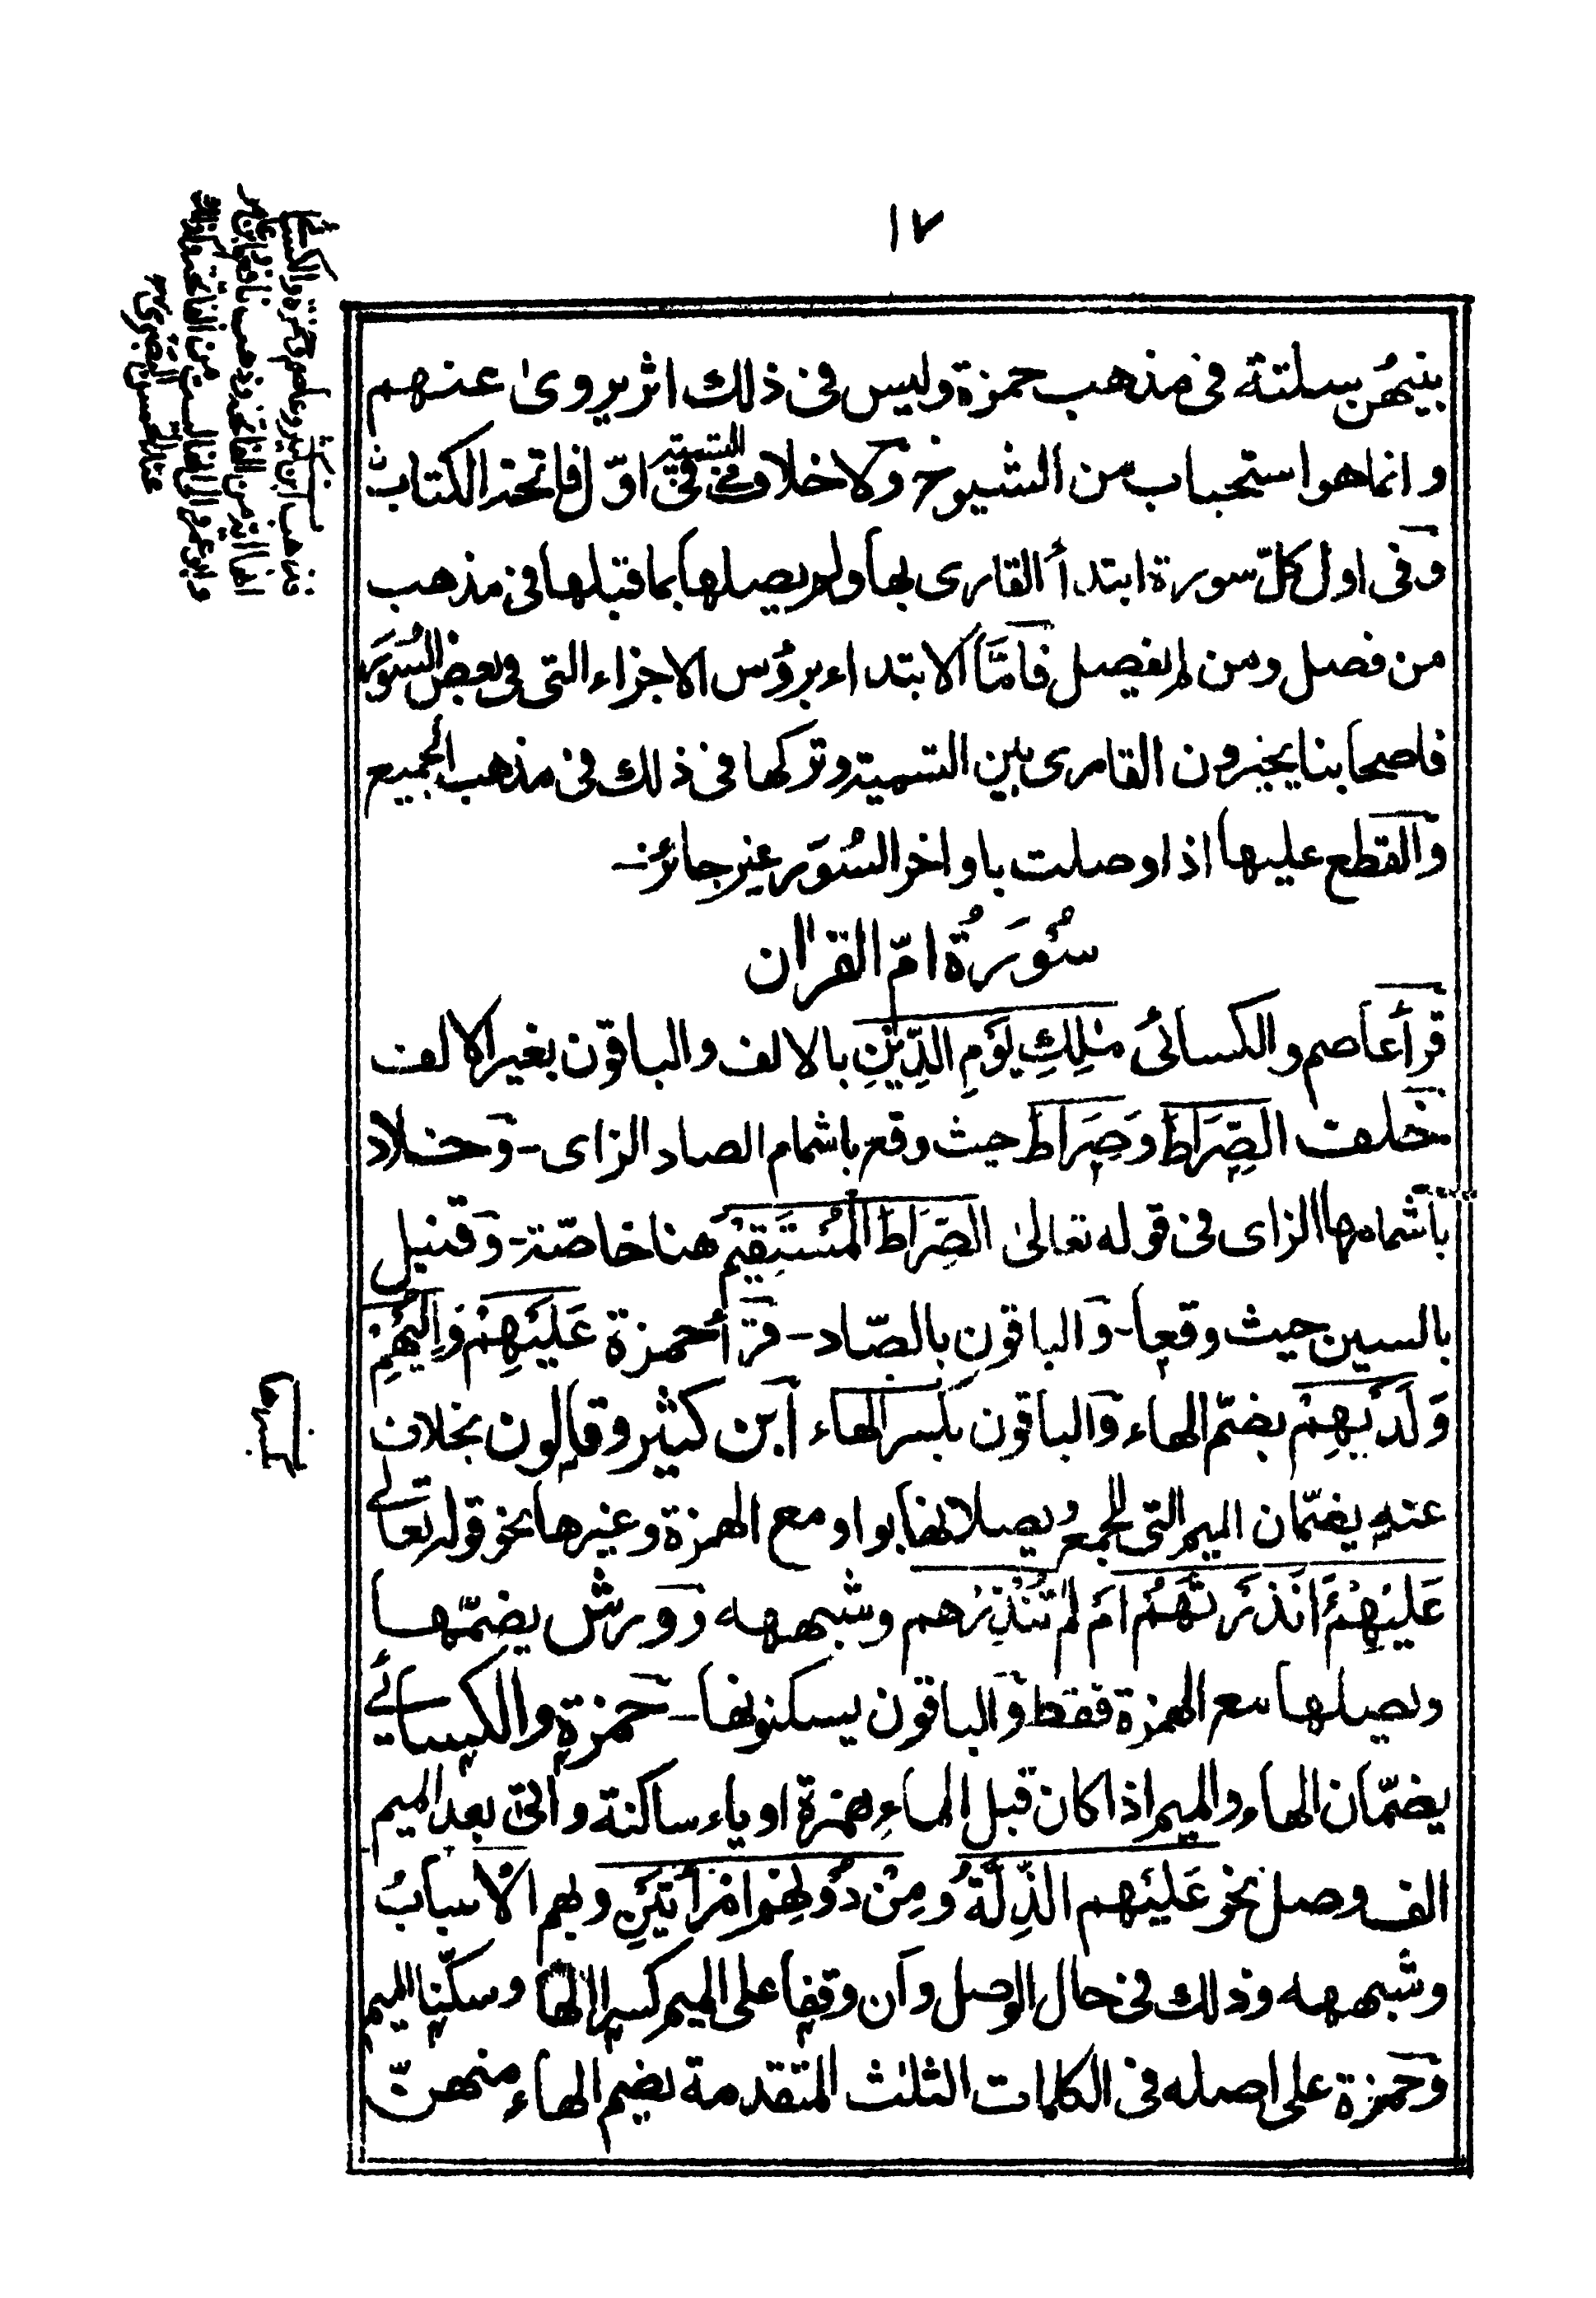 ١٧
بينهن بسكتة فى مذهب حمزة وليس فى ذلك اثر يروىٰ عنهم
وانما هو استحباب من الشيوخ ولا خلاف فى التسمية فى اوّل فاتحة الكتاب
وفى اول كلّ سورة ابتدأ القارى بها ولم يصلها بما قبلها فى مذهب
من فصل ومن لم يفصل فامّا الابتداء برؤس الاجزاء التى فى بعض السُوَر
فاصحابنا يخيرون القارى بين التسمية وتركها فى ذلك فى مذهب الجميع
والقطع عليها اذا وصلت باواخر السُوَر غير جائز-
سُوْرَةُ امّ القراٰن
قرأ عاصم والكسائى مٰلِكِ يَوْمِ الدِّيْنِ بالالف والباقون بغير الالف
خلف الصِّرَاطَ وَصِرَاطَ حيث وقع باشمام الصاد الزاى- وَخلاد
باشمامها الزاى فى قوله تعالىٰ الصِّرَاطَ الْمُسْتَقِيْمَ هنا خاصّة- وَقنبل
بالسين حيث وقعا- وَالباقون بالصّاد- قرأ حمزة عَلَيْهِمْ وَاِلَيْهِمْ
وَلَدَيْهِمْ بضمّ الهاء وَالباقون بكسر الهاء ابن كثير وقالون بخلاف
عنه يضمّان الميم التى للجمع ويصلانها بواو مع الهمزة وغيرها نحو قوله تعالى
عَلَيْهِمْ ءَاَنْذَرْتَهُمْ اَمْ لَمْ تُنْذِرْهم وشبهه وَورش يضمّها
ويصلها مع الهمزة فقط وَالباقون يسكنونها- حمزة والكسائي
يضمّان الهاء والميم اذا كان قبل الهاءِ كسرة او ياء ساكنة واتىٰ بعد الميم
الف وصل نحو عَلَيْهم الذِّلَّةُ وَمِنْ دُوْنِهِمُ امْرَأَتَيْنِ وبهم الْاَسْبَابُ
وشبهه وذلك فى حال الوصل وان وقفا على الميم كسرا الهاء وسكّنا الميم
وَحمزة على اصله فى الكلمات الثلٰث المتقدمة بضم الهاء منهنّ